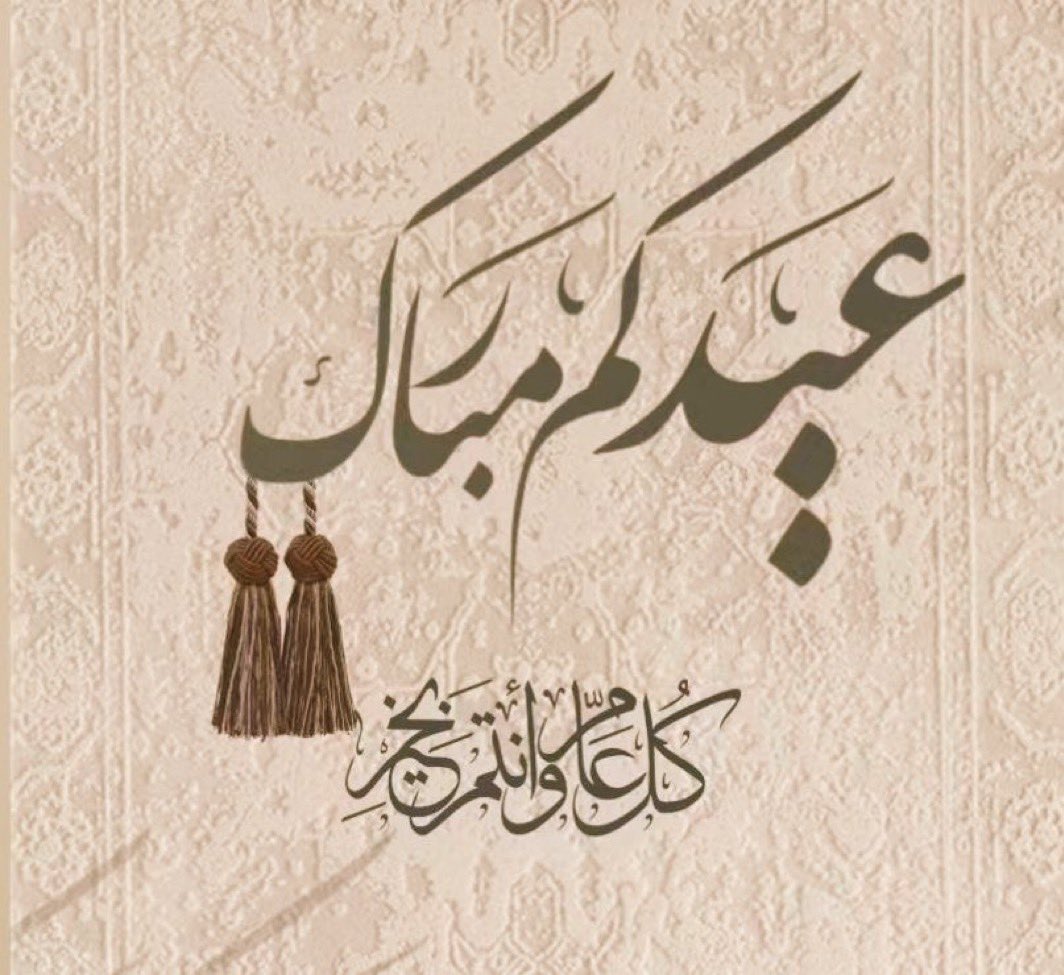 عيدكم مبارك
كُل عام وأنتم بخير